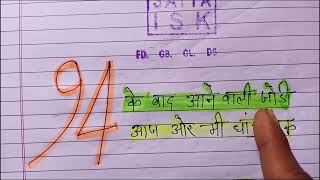 SATTA
ISK
FD. GB. GL. DS
94
के बाद आने वाली जोडी
आज और भी